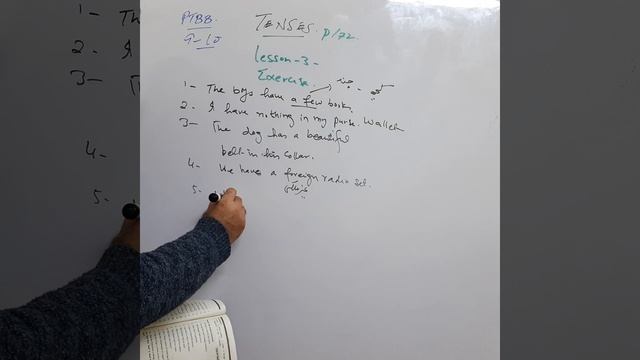 PTBB
9-10
TENSES. P/72
Lesson-3-
Exercise.
1- The boys have a few books. چند - کچھ
2. I have nothing in my purse. Wallet
3- The dog has a beautiful
belt in his collar.
4- We have a foreign radio set.
5-
1- Th
2. I
3-
4-
5.